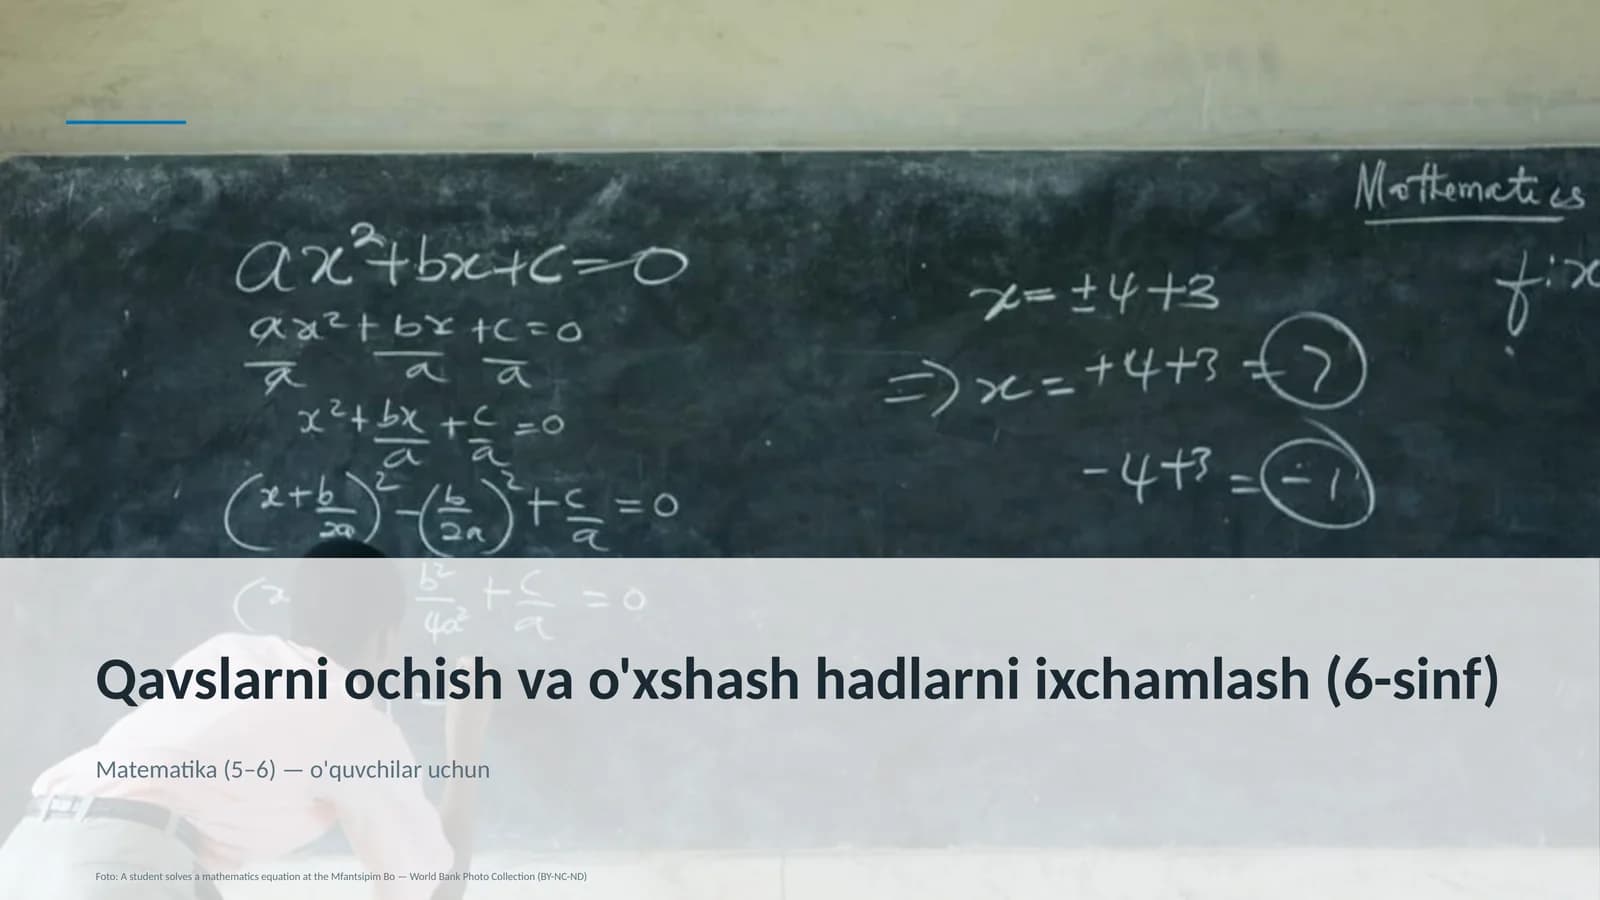 Mathematics
ax²+bx+c=0
ax²/a + bx/a + c/a =0
x²+bx/a+c/a=0
(x+b/2a)²-(b/2a)²+c/a=0
(x b²/4a²+c/a=0
x=±4+3
⇒x=+4+3=7
-4+3=-1
f:x
Qavslarni ochish va o'xshash hadlarni ixchamlash (6-sinf)
Matematika (5–6) — o'quvchilar uchun
Foto: A student solves a mathematics equation at the Mfantsipim Bo — World Bank Photo Collection (BY-NC-ND)